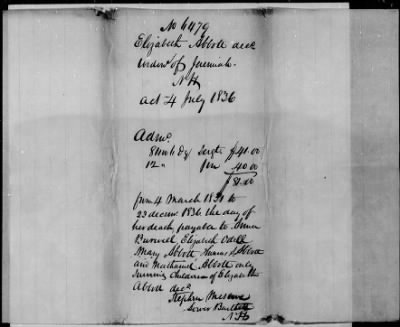 No 6479
Elizabeth Abbott decd
Widow of Jeremiah
N H
act 4 July 1836
Admd
8 mos Sergt $41.00
12 " 40.00
$81.00
from 4 March 1831 to
23 decem 1836 the day of
her death, payable to
Burwell Elizabeth Odell
Mary Abbott Thomas Abbott
and Nathaniel Abbott only
surviving Children of Elizabeth
Abbott decd
Stephen Meserve
Lower Bartlett
N H